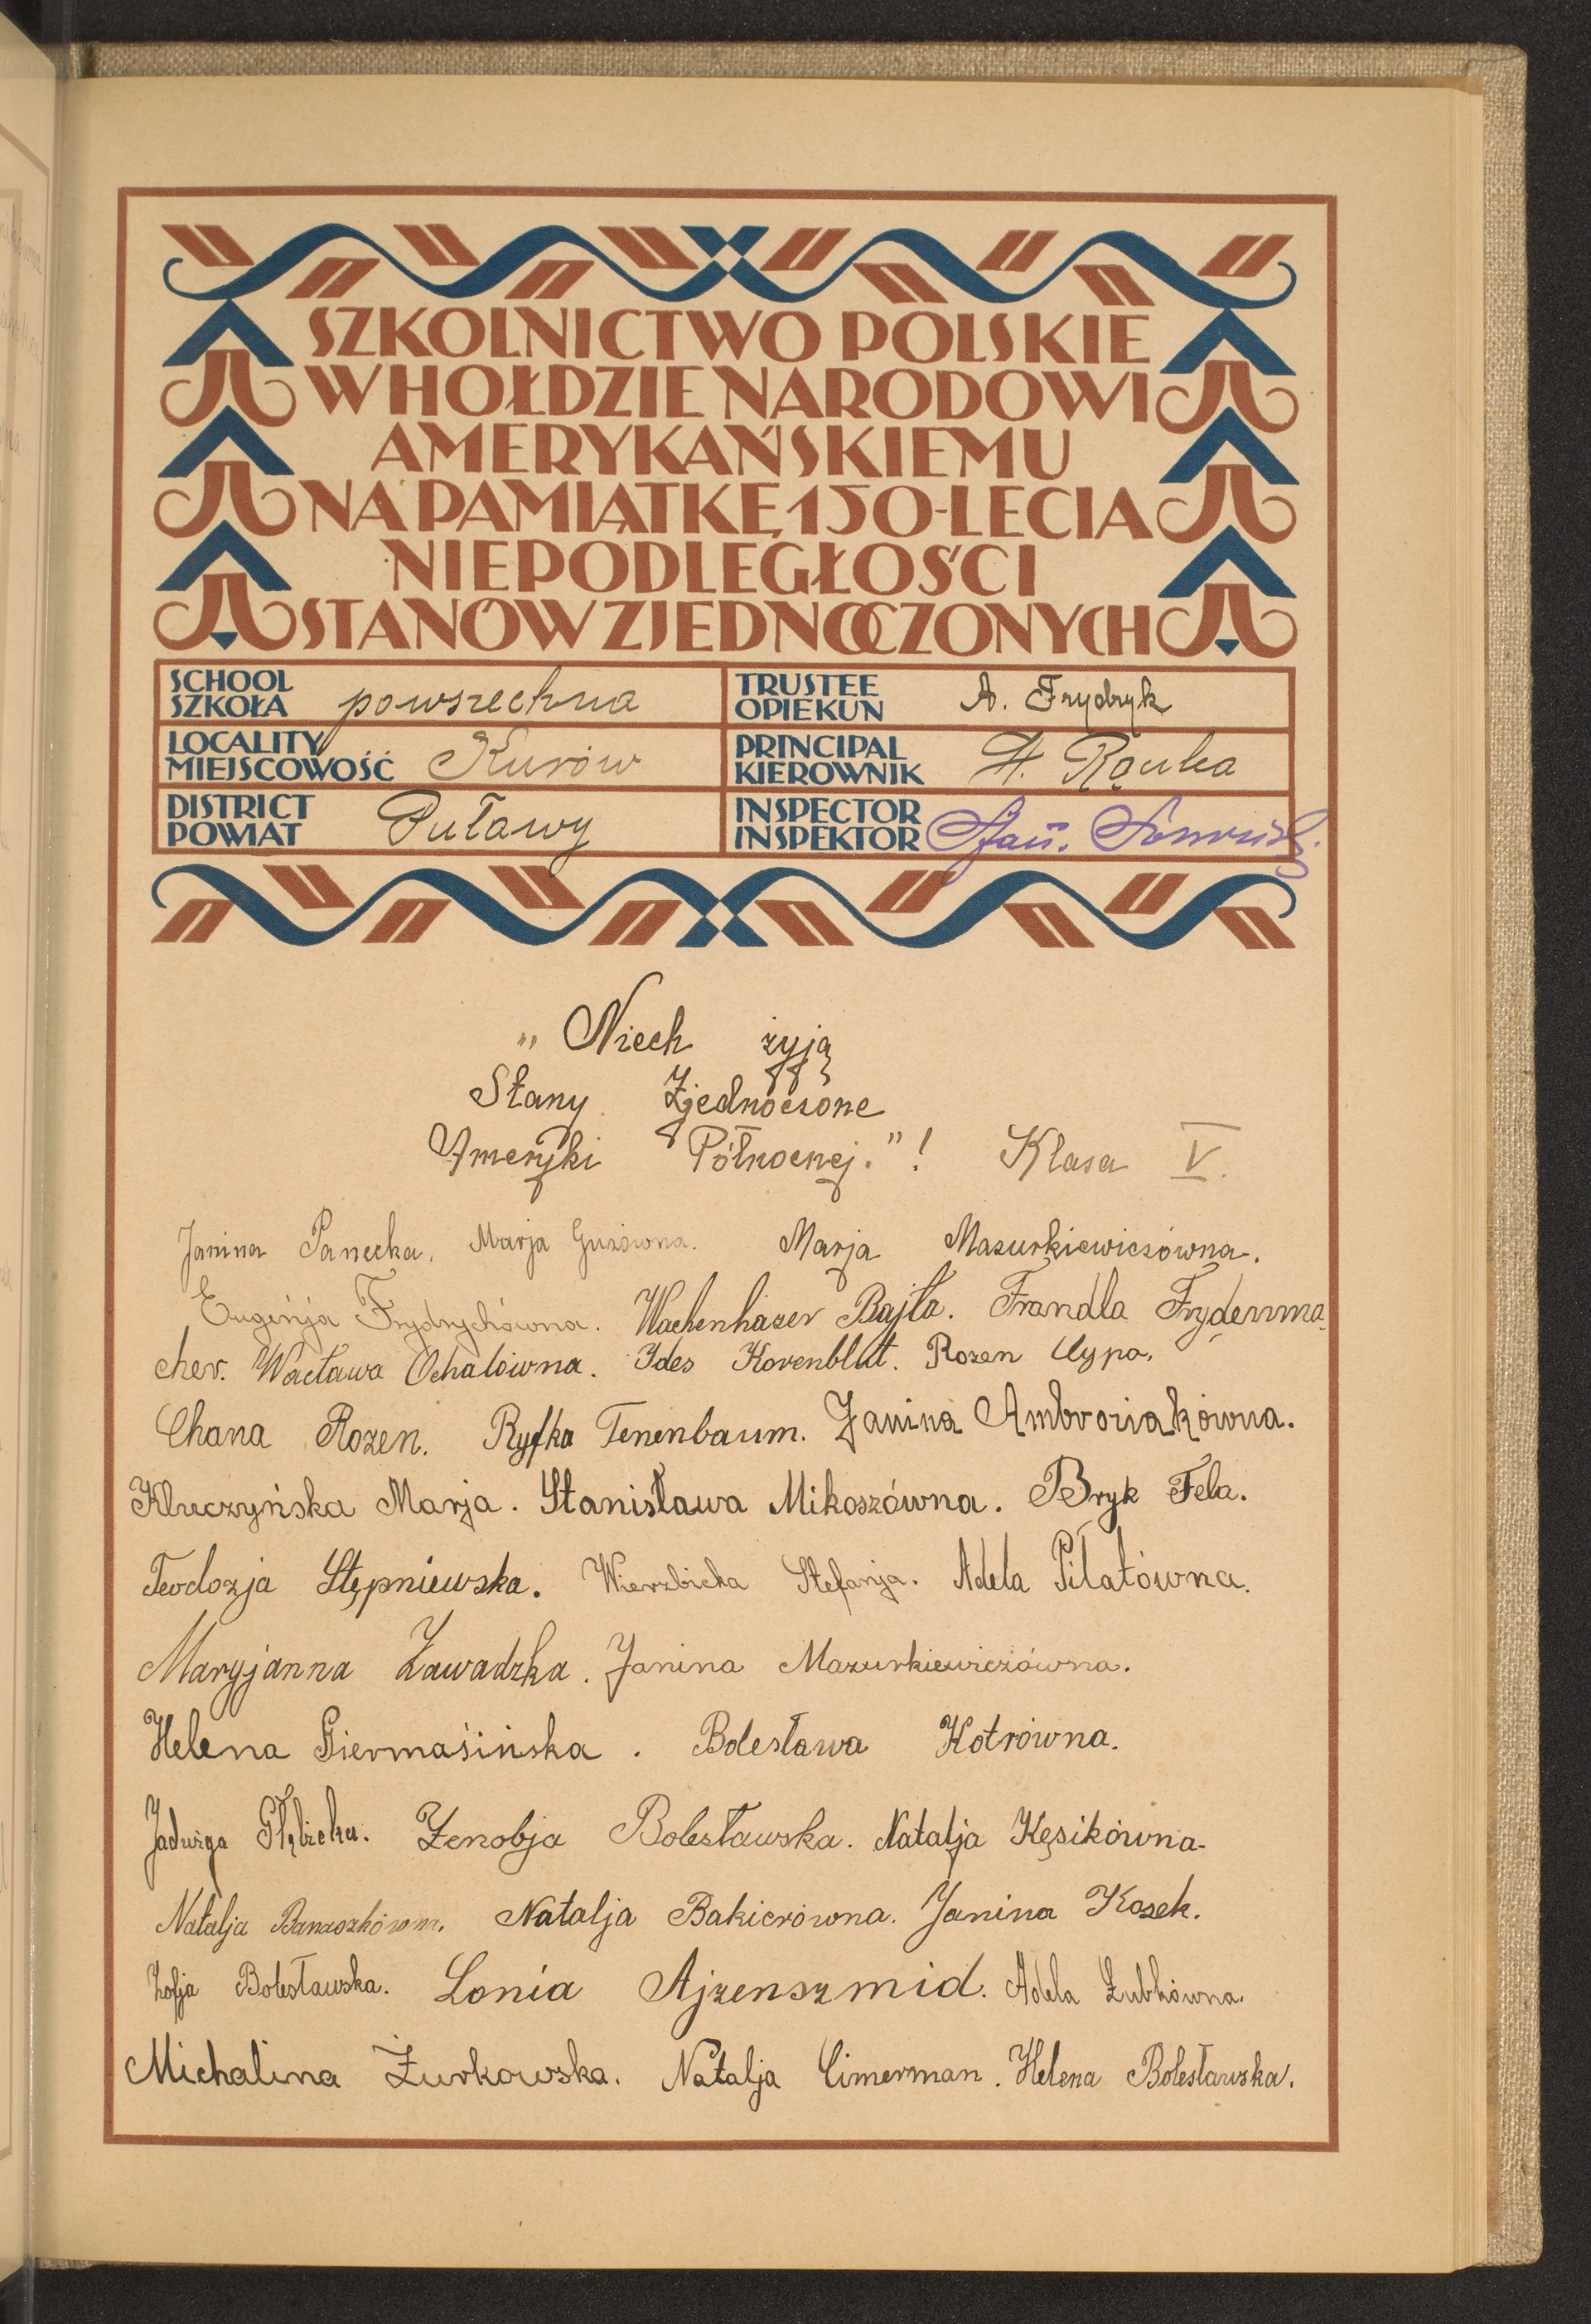 SZKOLNICTWO POLSKIE
W HOŁDZIE NARODOWI
AMERYKAŃSKIEMU
NA PAMIĄTKĘ 150-LECIA
NIEPODLEGŁOŚCI
STANÓW ZJEDNOCZONYCH
SCHOOL
SZKOŁA powszechna
TRUSTEE
OPIEKUN A. Frydryk
LOCALITY
MIEJSCOWOŚĆ Kurów
PRINCIPAL
KIEROWNIK
DISTRICT
POWIAT Puławy
INSPECTOR
INSPEKTOR
„Niech żyją
Stany Zjednoczone
Ameryki Północnej."! Klasa V.
Janina Panecka. Marja Guzówna. Marja Mazurkiewiczówna.
Eugenja Frydrychówna. Wachenhazer Bajła. Frandla Fryderma
cher. Wacława Ochalówna. Ides Korenblut. Rozen Cypa.
Chana Rozen. Ryfka Tenenbaum. Janina Ambroziakówna.
Kluczyńska Marja. Stanisława Mikoszówna. Bryk Fela.
Teodozja Stępniewska. Wierzbicka Stefanja. Adela Piłatówna.
Maryjanna Zawadzka. Janina Mazurkiewiczówna.
Helena Giermasińska. Bolesława Kotrówna.
Jadwiga Głębicka. Zenobja Bolesławska. Natalja Kęsikówna.
Natalja Banaszkówna. Natalja Bakierówna. Janina Kosek.
Zofja Bolesławska. Lonia Ajzenszmid. Adela Żubkówna.
Michalina Żurkowska. Natalja Cimerman. Helena Bolesławska.